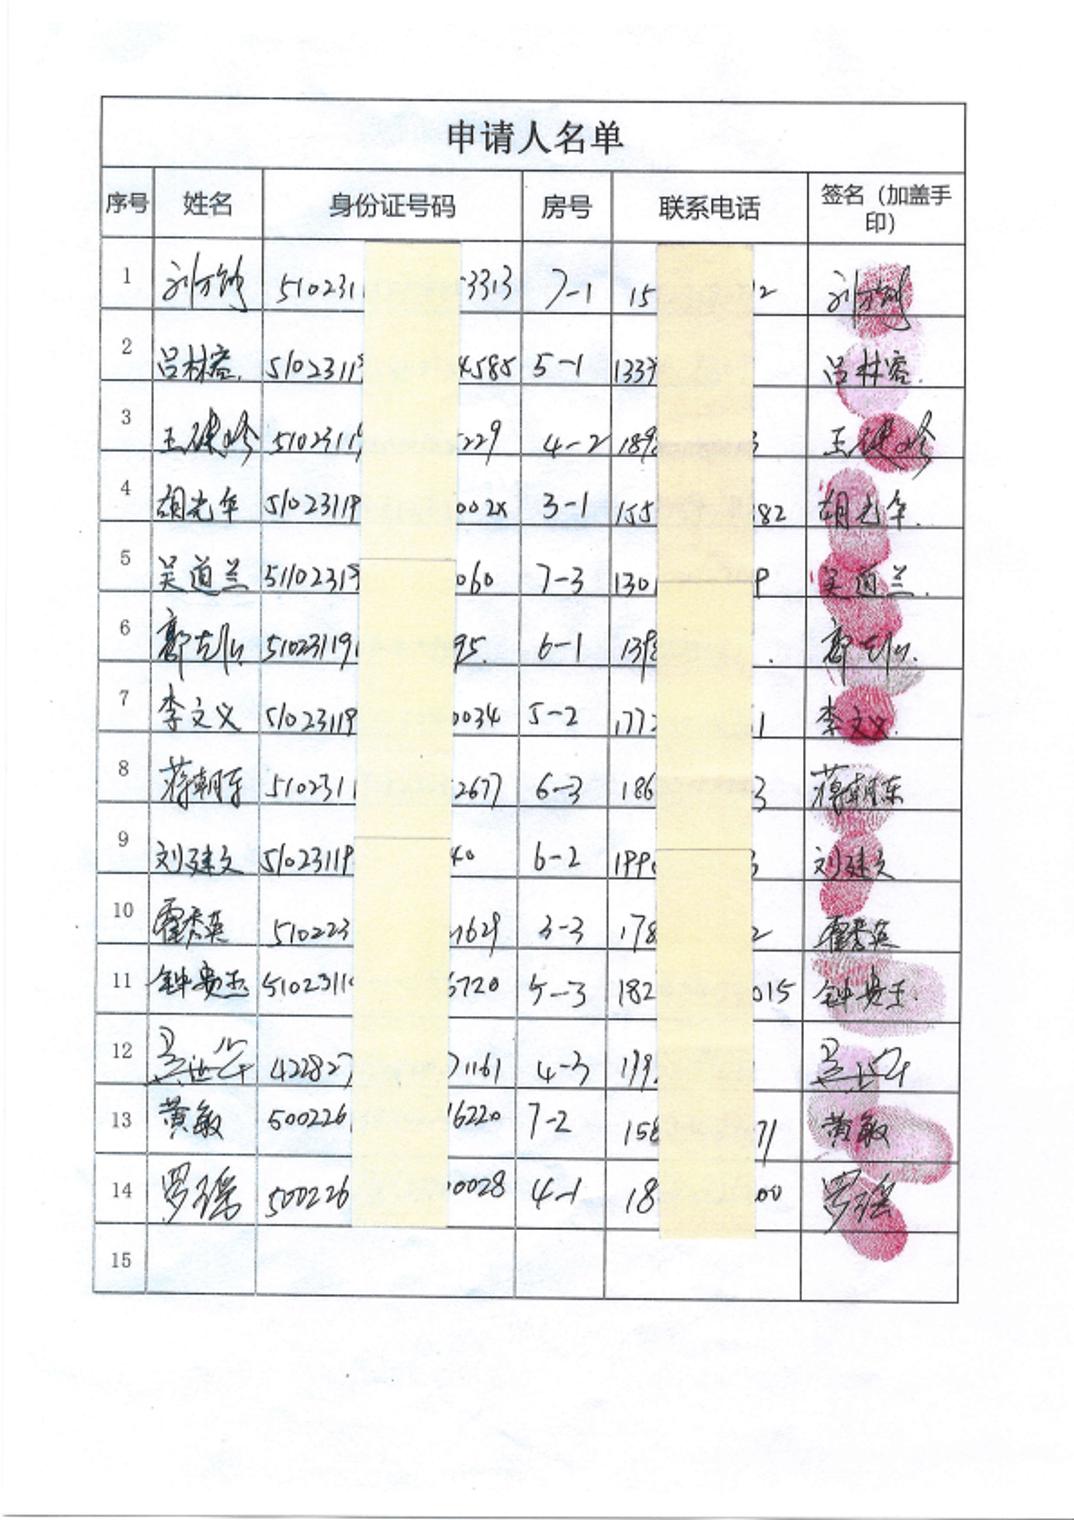 申请人名单
序号 姓名 身份证号码 房号 联系电话 签名（加盖手印）
1 510231 3313 7-1 15 2
2 吕林容 51023119 4585 5-1 1339 吕林容
3 王 5102311 229 4-2 189 3 王
4 胡光华 51023119 002X 3-1 155 82 胡光华
5 吴道兰 51102319 060 7-3 1301 9 吴道兰
6 郭 510231191 95 6-1 139 郭
7 李文义 51023119 0034 5-2 1772 1 李文义
8 蒋朝东 5102311 2677 6-3 186 3 蒋朝东
9 刘建文 51023119 40 6-2 199 3 刘建文
10 霍秀英 510223 1629 3-3 178 2 霍秀英
11 钟贵玉 5102311 6720 5-3 182 015 钟贵玉
12 422827 1161 4-3 199
13 黄敏 500226 16220 7-2 158 71 黄敏
14 罗瑶 500226 0028 4-1 18 00 罗瑶
15